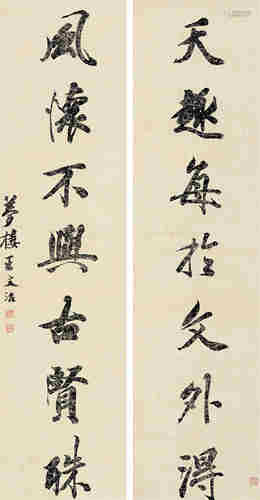 天趣每於文外得
風懷不與古賢殊
夢樓王文治